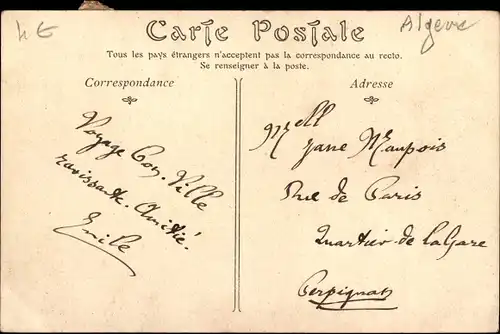 4 €
Algerie
Carte Postale
Tous les pays étrangers n'acceptent pas la correspondance au recto.
Se renseigner à la poste.
Correspondance
Voyage bon. Ville
ravissante. Amitié.
Emile
Adresse
Mell
Jane Maupois
Rue de Paris
Quartier de la Gare
Perpignan